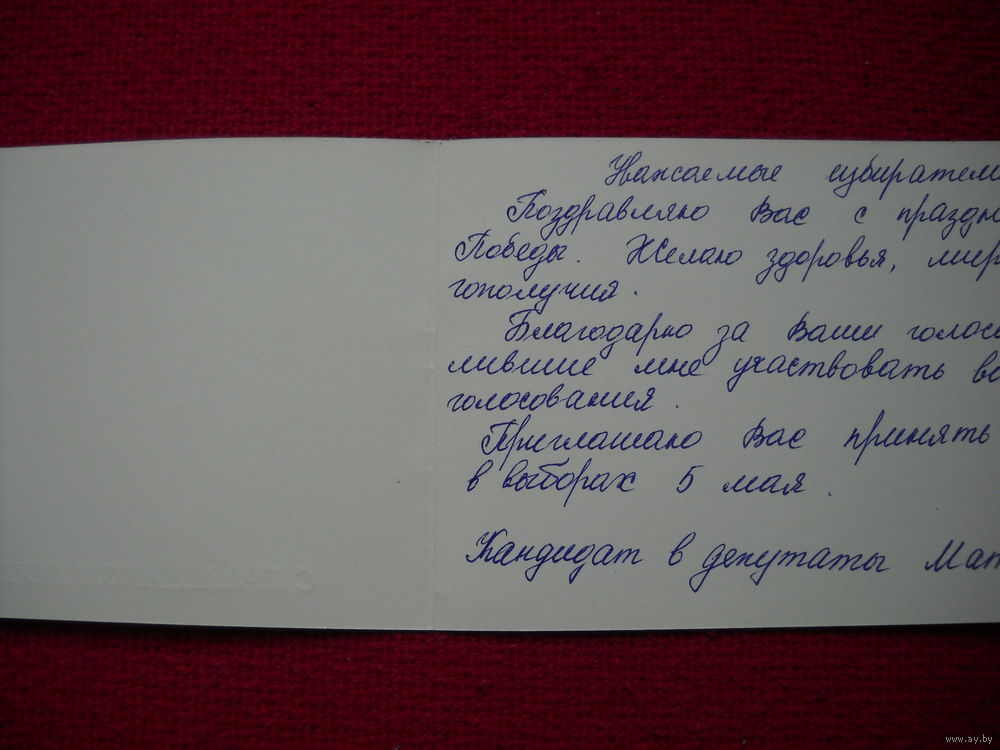 Уважаемые избирател
Поздравляю Вас с праздн
Победы. Желаю здоровья, мир
гополучия.
Благодарю за Ваши голос
лившие мне участвовать во
голосования.
Приглашаю Вас принять
в выборах 5 мая.
Кандидат в депутаты Мат
www.ay.by